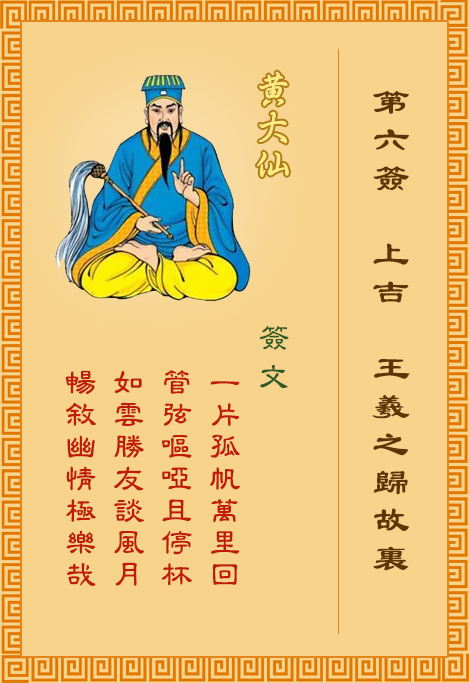 第六簽 上吉 王羲之歸故裏
黃大仙
簽文
一片孤帆萬里回
管弦嘔啞且停杯
如雲勝友談風月
暢敘幽情極樂哉